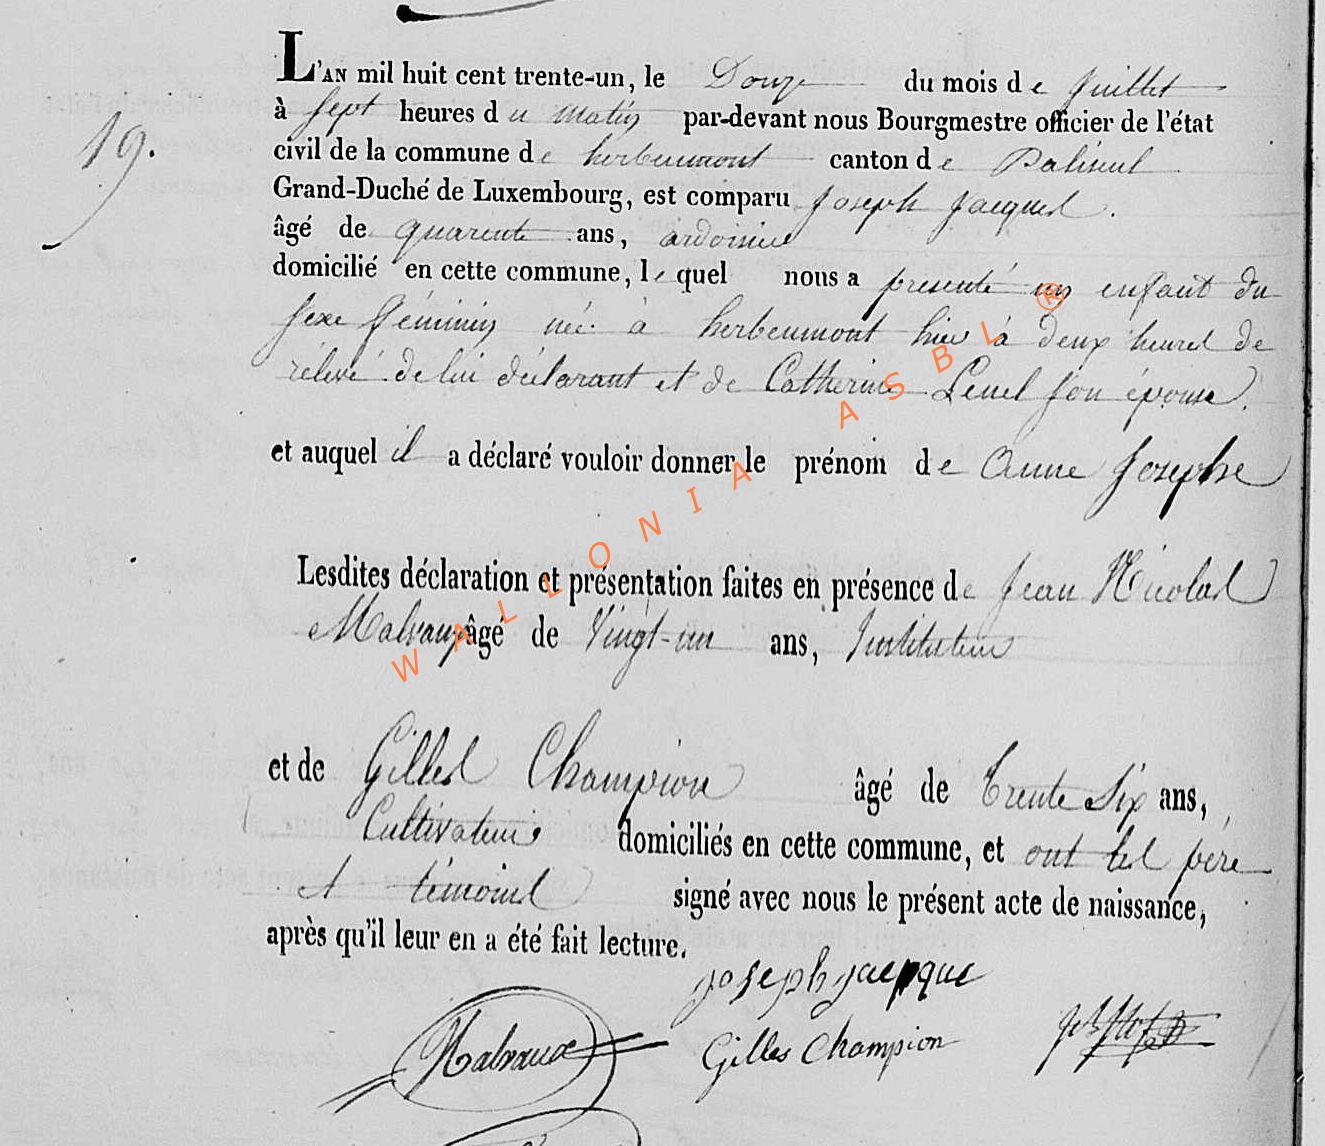 L'AN mil huit cent trente-un, le Douze du mois de Juillet
à Sept heures du matin par-devant nous Bourgmestre officier de l'état
19.
civil de la commune de herbeumont canton de Paliseul
Grand-Duché de Luxembourg, est comparu Joseph Jacques.
âgé de quarente ans, ardoisier
domicilié en cette commune, lequel nous a presenté un enfant du
sexe féminin née à herbeumont hier à deux heures de
rélevé de lui déclarant et de Catherine son épouse.
et auquel il a déclaré vouloir donner le prénom de Anne Josephe
Lesdites déclaration et présentation faites en présence de Jean Nicolas
Malvaux âgé de Vingt-un ans, Instituteur
et de Gilles Champion âgé de Trente Six ans,
Cultivateur domiciliés en cette commune, et ont les père
et témoins signé avec nous le présent acte de naissance,
après qu'il leur en a été fait lecture.
Joseph Jacque
Malvaux Gilles Champion
WALLONIA ASBL ®